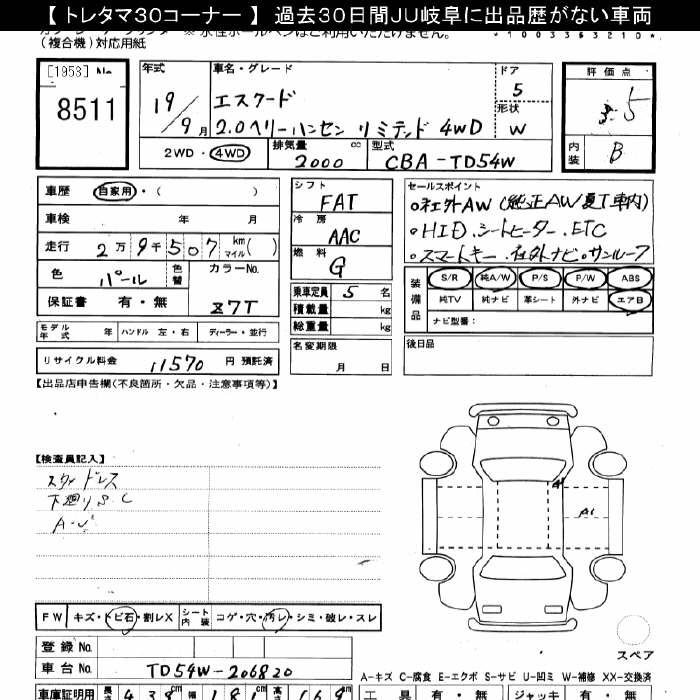 【 トレタマ30コーナー 】 過去30日間JU岐阜に出品歴がない車両
(複合機)対応用紙
[1953] No.
8511
年式
19/9月
車名・グレード
エスクード
2.0 ヘリーハンセン リミテッド 4WD
ドア
5
形状
W
評価点
3.5
内装
B
2WD・4WD
排気量
2000 cc
型式
CBA-TD54W
車歴 自家用・( )
車検 年 月
走行 2万9千507 km マイル( )
色 パール 色替
カラーNo.
Z7T
保証書 有・無
モデル年式 年 ハンドル 左・右 ディーラー・並行
リサイクル料金 11570 円 預託済
シフト
FAT
冷房
AAC
燃料
G
乗車定員 5 名
積載量 kg
総重量 kg
名変期限
月 日
セールスポイント
○社外AW (純正AW夏T車内)
○HID.シートヒーター.ETC
○スマートキー.社外ナビ○サンルーフ
装備品
S/R 純A/W P/S P/W ABS
純TV 純ナビ 革シート 外ナビ エアB
ナビ型番:
後日品
【出品店申告欄(不良箇所・欠品・注意事項等)】
【検査員記入】
スタッドレス
下廻りS C
A1
FW キズ・トビ石・割レX シート内装 コゲ・穴・汚レ・シミ・破レ・スレ
登録 No.
車台 No. TD54W-206820
スペア
A-キズ C-腐食 E-エクボ S-サビ U-凹ミ W-補修 XX-交換済
車庫証明用 長さ 438 cm 幅 181 cm 高さ 169
工具 有・無 ジャッキ 有・無